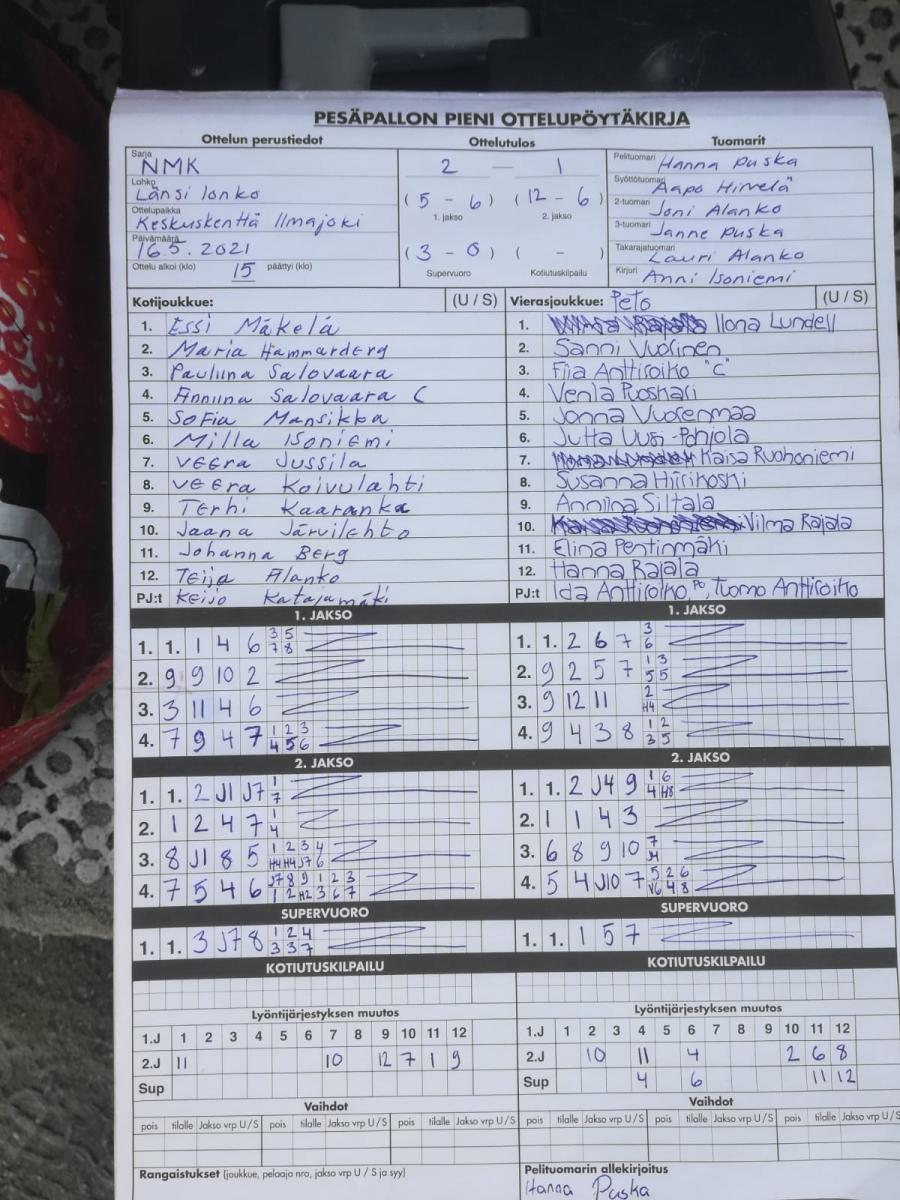 PESÄPALLON PIENI OTTELUPÖYTÄKIRJA
Ottelun perustiedot Ottelutulos Tuomarit
Sarja NMK
Lohko Länsi lonko
Ottelupaikka Keskuskenttä Ilmajoki
Päivämäärä 16.5.2021
Ottelu alkoi (klo) 15 päättyi (klo)
2 — 1
(5 - 6) (12 - 6)
1. jakso 2. jakso
(3 - 0) ( - )
Supervuoro Kotiutuskilpailu
Pelituomari Hanna Puska
Syöttötuomari Aapo Hirvelä
2-tuomari Joni Alanko
3-tuomari Janne Puska
Takarajatuomari Lauri Alanko
Kirjuri Anni Isoniemi
Kotijoukkue: (U / S)
1. Essi Mäkelä
2. Maria Hammarberg
3. Pauliina Salovaara
4. Anniina Salovaara C
5. Sofia Mansikka
6. Milla Isoniemi
7. Veera Jussila
8. Veera Koivulahti
9. Terhi Kaaranka
10. Jaana Järvilehto
11. Johanna Berg
12. Teija Alanko
PJ:t Keijo Katajamäki
Vierasjoukkue: Peto (U / S)
1. Ilona Lundell
2. Sanni Vuorinen
3. Fiia Anttiroiko "C"
4. Venla Puskari
5. Jonna Vuorenmaa
6. Jutta Uusi-Pohjola
7. Kaisa Ruohoniemi
8. Susanna Hiirikoski
9. Anniina Siltala
10. Vilma Rajala
11. Elina Pentinmäki
12. Hanna Rajala
PJ:t Ida Anttiroiko, PO, Tuomo Anttiroiko
1. JAKSO
1. 1. 1 4 6 3 5
7 8
2. 9 9 10 2
3. 3 11 4 6
4. 7 9 4 7 1 2 3
4 5 6
1. JAKSO
1. 1. 2 6 7 3
6
2. 9 2 5 7 1 3
5 5
3. 9 12 11 2
H4
4. 9 4 3 8 1 2
3 5
2. JAKSO
1. 1. 2 J1 J7 1
7
2. 1 2 4 7 1
4
3. 8 J1 8 5 1 2 3 4
H4 H4 J7 6
4. 7 5 4 6 J7 8 9 1 2 3
1 2 H2 3 6 7
2. JAKSO
1. 1. 2 J4 9 1 6
4 H8
2. 1 1 4 3
3. 6 8 9 10 7
4. 5 4 J10 7 5 2 6
V6 4 8
SUPERVUORO
1. 1. 3 J7 8 1 2 4
3 3 7
SUPERVUORO
1. 1. 1 5 7
KOTIUTUSKILPAILU
KOTIUTUSKILPAILU
Lyöntijärjestyksen muutos
1.J 1 2 3 4 5 6 7 8 9 10 11 12
2.J 11 10 12 7 1 9
Sup
Lyöntijärjestyksen muutos
1.J 1 2 3 4 5 6 7 8 9 10 11 12
2.J 10 11 4 2 6 8
Sup 4 6 11 12
Vaihdot
pois tilalle Jakso vrp U / S pois tilalle Jakso vrp U / S pois tilalle Jakso vrp U / S
Vaihdot
pois tilalle Jakso vrp U / S pois tilalle Jakso vrp U / S pois tilalle Jakso vrp U / S
Rangaistukset (joukkue, pelaaja nro, jakso vrp U / S ja syy)
Pelituomarin allekirjoitus
Hanna Puska